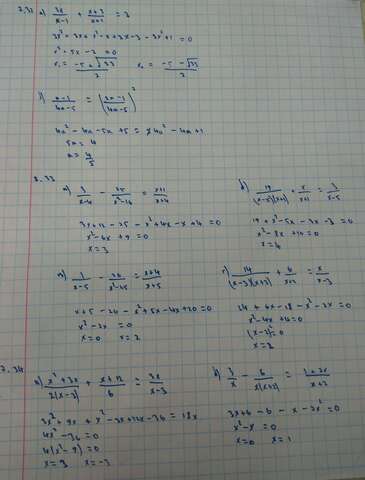 7.32 a) 3x/(x-1) + (x+3)/(x+1) = 3
3x² + 3x + x² - x + 3x - 3 - 3x² + 1 = 0
x² + 5x - 2 = 0
x₁ = (-5 + √33)/2 x₂ = (-5 - √33)/2
(n-1)/(4n-5) = ((2n-1)/(4n-5))²
4n² - 4n - 5n + 5 = 4n² - 4n + 1
5n = 4
n = 4/5
7.33
a) 3/(x-4) - 25/(x²-16) = (x+1)/(x+4)
3x + 12 - 25 - x² + 4x - x + 4 = 0
x² - 6x + 9 = 0
x = 3
b) 19/((x-5)(x+1)) + x/(x+1) = 3/(x-5)
19 + x² - 5x - 3x - 3 = 0
x² - 8x + 16 = 0
x = 4
1/(x-5) - 24/(x²-25) = (x+4)/(x+5)
x + 5 - 24 - x² + 5x - 4x + 20 = 0
x² - 2x = 0
x = 0 x = 2
14/((x-3)(x+2)) + 6/(x+2) = x/(x-3)
14 + 6x - 18 - x² - 2x = 0
x² - 4x + 4 = 0
(x-2)² = 0
x = 2
7.34
a) (x² + 3x)/(2(x-3)) + (x+12)/6 = 3x/(x-3)
3x² + 9x + x² - 3x + 12x - 36 = 18x
4x² - 36 = 0
4(x² - 9) = 0
x = 3 x = -3
b) 3/x - 6/(x(x+2)) = (1+2x)/(x+2)
3x + 6 - 6 - x - 2x² = 0
x² - x = 0
x = 0 x = 1